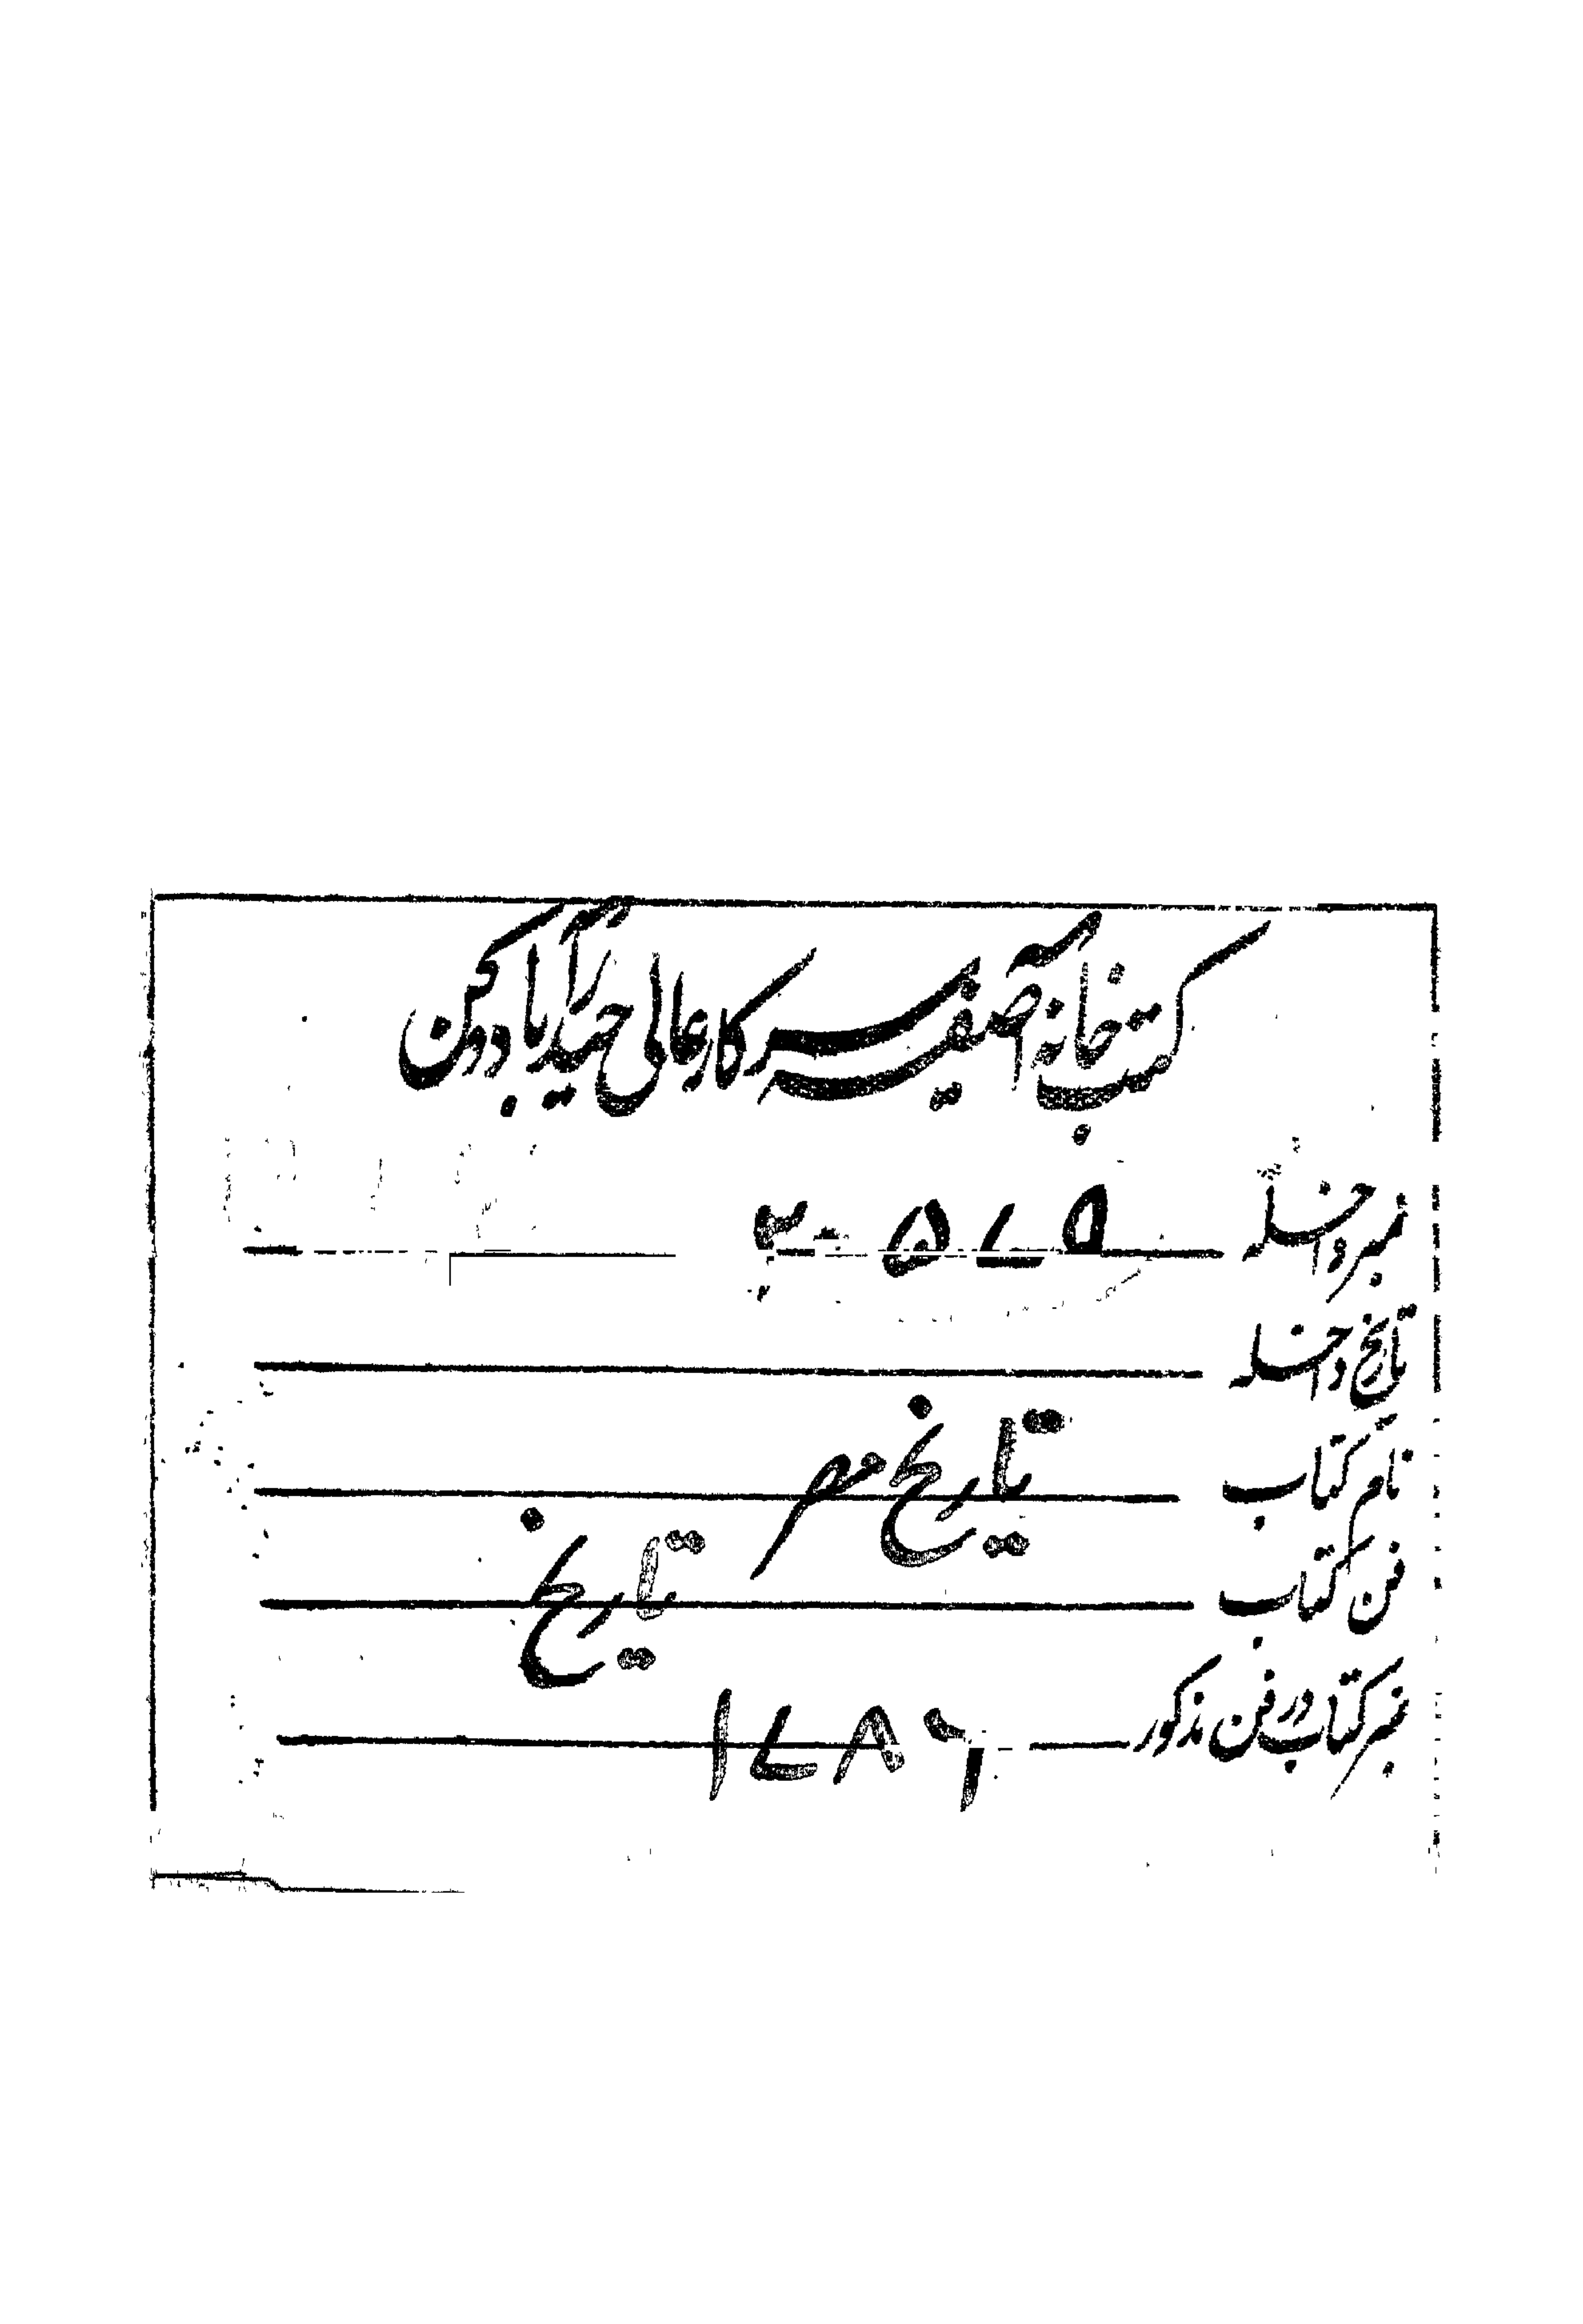 کتب خانہ آصفیہ سرکار عالی حیدرآباد دکن
نمبر داخلہ
تاریخ داخلہ
نام کتاب تاریخ مصر
فن کتاب تاریخ
نمبر کتاب در فن مذکور ۱۷۸۶